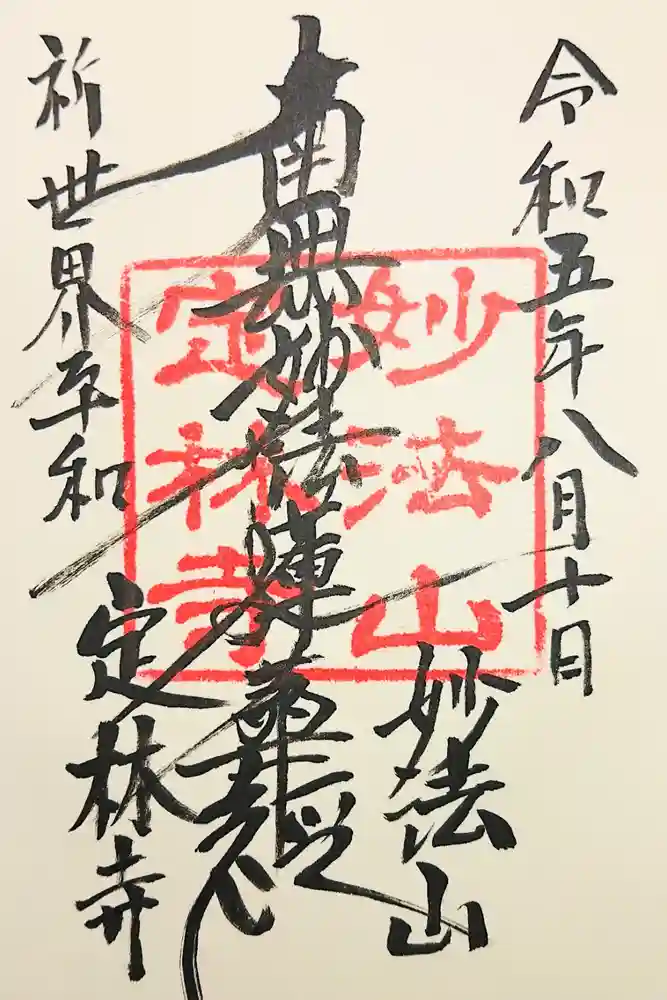 令和五年八月十日
妙法山
南無妙法蓮華経
祈世界平和
定林寺
妙法山
定林寺